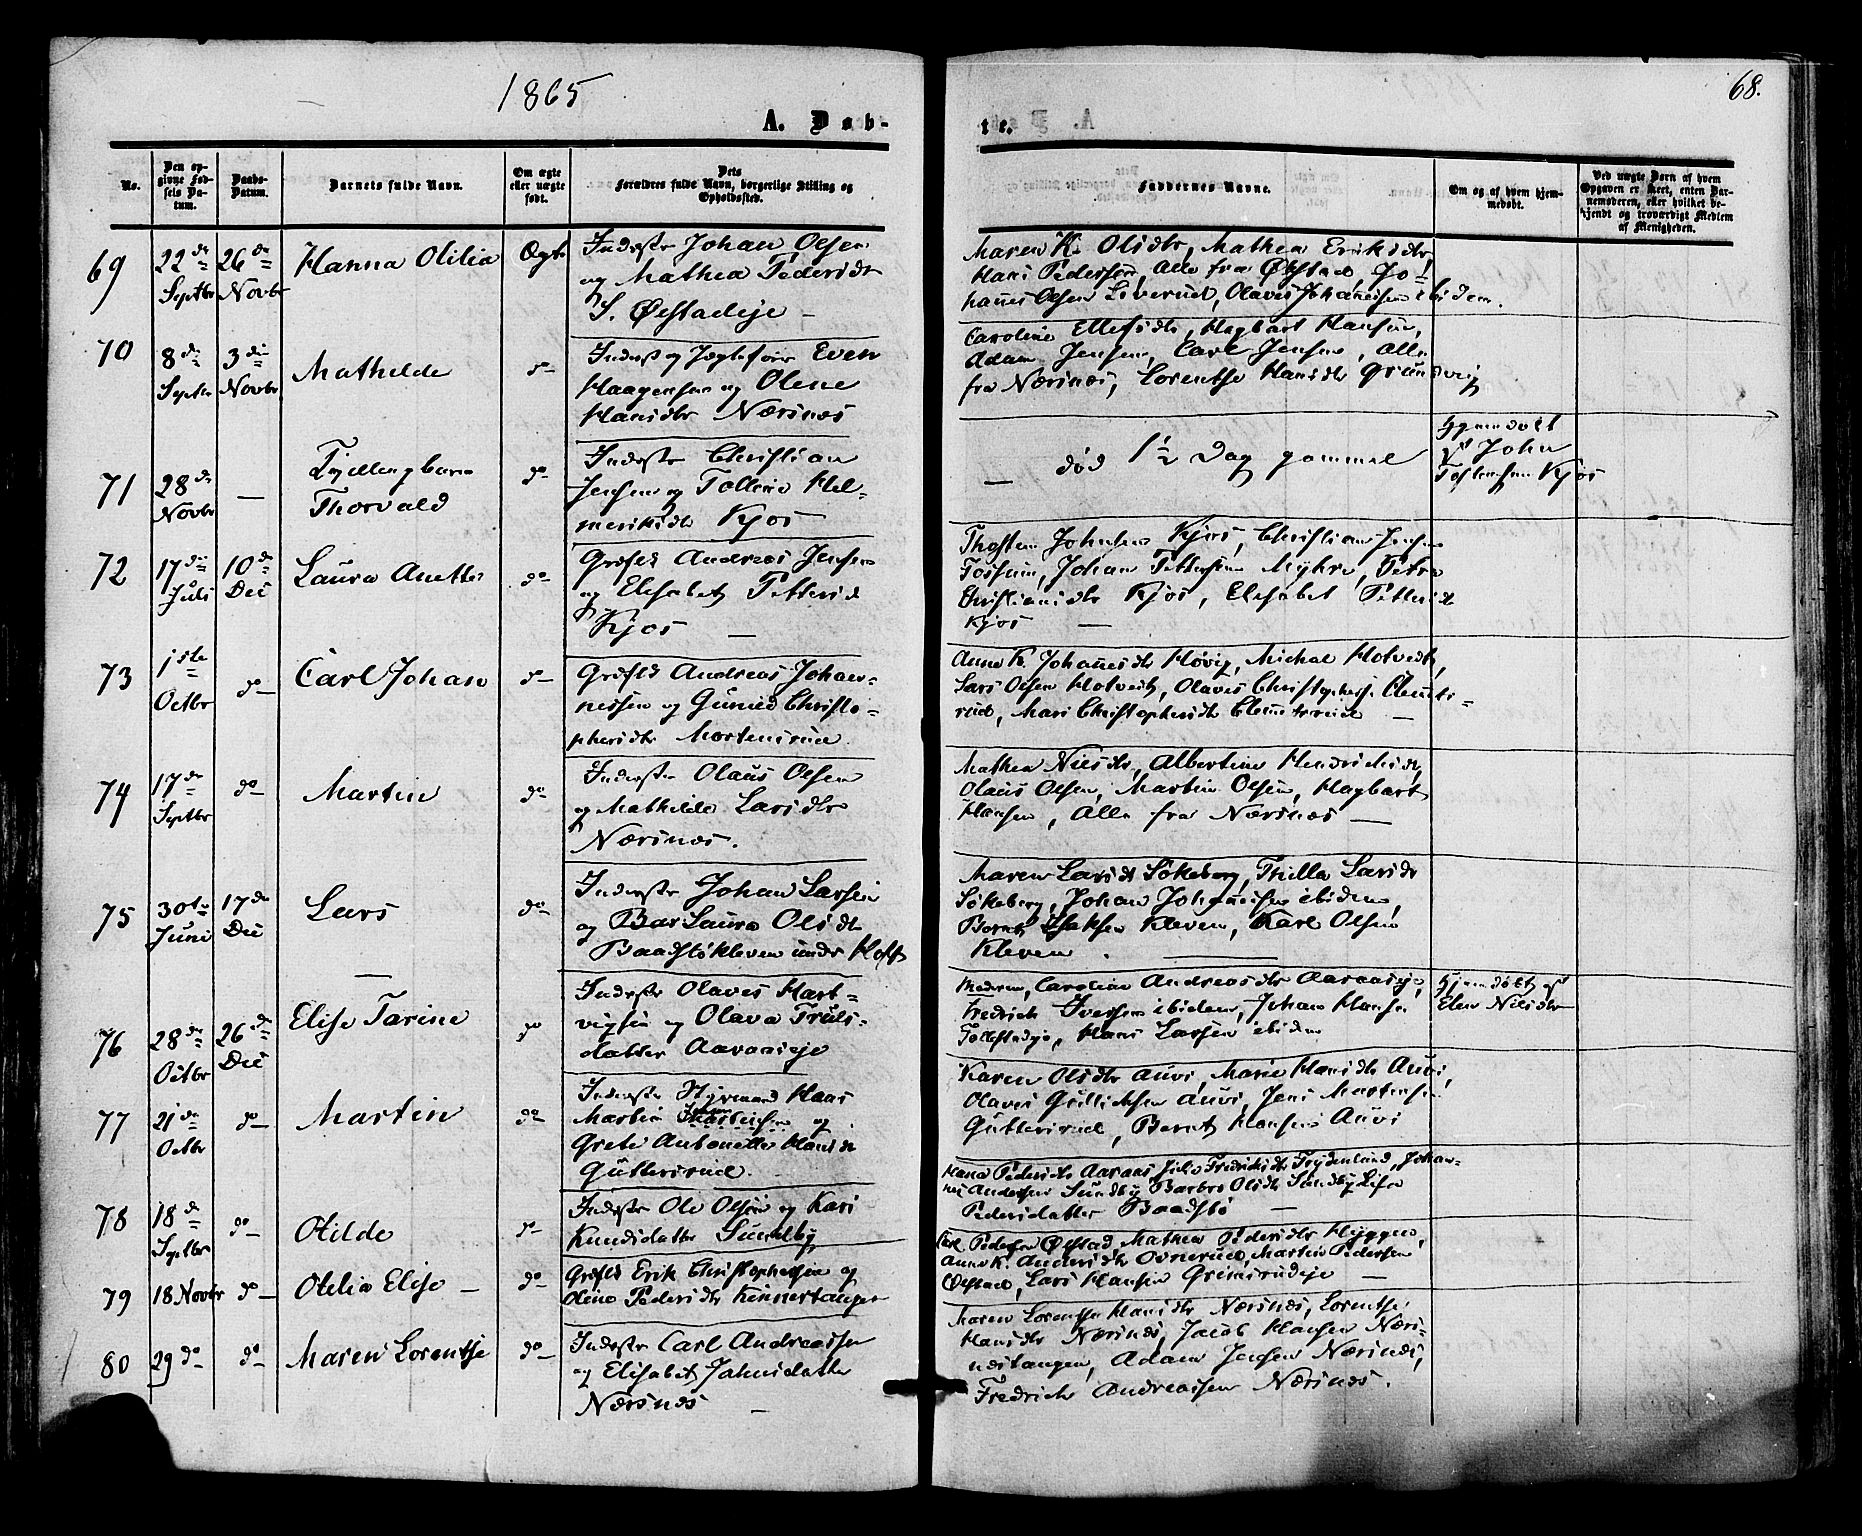 1865
68.
A. Døb-
te.
No.
Den op-
givne Fød-
sels Da-
tum.
Daabs-
Datum.
Barnets fulde Navn.
Om ægte
eller uægte
født.
Dets
Forældres fulde Navn, borgerlige Stilling og
Opholdssted.
Faddernes Navne.
Om og af hvem hjem-
medøbt.
Ved uægte Børn af hvem
Opgaven er skeet, enten Bar-
nemoderen, eller hvilket be-
kjendt og troværdigt Medlem
af Menigheden.
69
22de
Septbr
26de
Novbr
Hanna Otilia
Ægte
Inderste Johan Olsen
og Mathea Pedersdtr
S. Øestadeje —
Maren K. Olsdtr, Mathea Eriksdtr
Hans Pedersen, Alle fra Øestad, Jo-
hannes Olsen Liverud, Olaves Johannesen ibidem.
70
8de
Septbr
3die
Novbr
Mathilde
do
Inderst og Jægtefører Even
Haagensen og Olene
Hansdtr Nærsnæs
Caroline Ellefsdtr, Hagbart Hansen,
Adam Jensen, Carl Jensen, Alle
fra Nærsnæs, Lorentse Hansdtr Grundvig
71
28de
Novbr
—
Tvillingbarn
Thorvald
do
Inderste Christian
Jensen og Polline Hel-
meriksdtr Kjos
— død 1½ Dag gammel
Hjemdøbt
af John
Tostensen Kjos
72
17de
Juli
10de
Dec
Laura Anette
do
Grdfld Andreas Jensen
og Elisabet Pettersd
Kjos —
Thosten Johnsen Kjos, Christian Jensen
Fossum, Johan Pettersen Myhre, Petra
Christiansdtr Kjos, Elisabet Pettersdtr
Kjos —
73
1ste
Octbr
do
Carl Johan
do
Grdfld Andreas Johan-
nessen og Gunild Christo-
phersdtr Mortensrud
Anne K. Johannesdtr Høvig, Michal Hotvedt,
Lars Olsen Hotvedt, Olaves Christophers. Clemets-
rud, Mari Christophersdtr Clemetsrud —
74
17de
Septbr
do
Martin
do
Inderste Olaus Olsen
og Mathilde Larsdtr
Nærsnæs.
Mathea Nielsdtr, Albertine Hendriksdtr,
Olaus Olsen, Martin Olsen, Hagbart
Hansen, Alle fra Nærsnæs —
75
30te
Juni
17de
Dec
Lars
—
do
Inderste Johan Larsen
og Bar Laura Olsdtr
Baadstøkleven under Hoff
Maren Larsdtr Søkeberg, Thilla Larsdtr
Søkeberg, Johan Johannesen ibidem,
Bernt Isaksen Kleven, Karl Olsen
Kleven. —
76
28de
Octbr
26de
Dec
Elise Tarine
do
Inderste Olaves Hart-
vigsen og Olava Truls-
datter Aaraaseje
Moderen, Caroline Andreasdtr Aaraaseje,
Fredrick Iversen ibidem, Johan Hansen
Follestadeje, Hans Larsen ibidem
Hjemdøbt af
Elen Nilsdtr
77
21de
Octbr
do
Martin
do
Inderste Styrmand Hans
Martin
Grete Antonette Hansd
Guttersrud.
Karen Olsdtr Auvi, Marie Hansdtr Auvi,
Olaves Gulliksen Auvi, Jens Mortensen
Guttersrud, Bernt Hansen Auvi
78
18de
Septbr
do
Otilde
do
Inderste Ole Olsen og Kari
Knudsdatter Sundby
Hana Pedersdtr Aaraas, Julie Fredriksdtr Frydenlund, Johan-
nes Andersen Sundby, Barbro Olsdtr Sundby, Lise
Pedersdatter Baadstø —
79
18 Novbr
do
Otelia Elise —
do
Grdfld Erik Christophersen og
Oline Pedersdtr Kinnertangen
Carl Pedersen Øestad, Mathea Pedersdtr Hyggen,
Anne K. Andersdtr Ovnerud, Martin Pedersen
Øestad, Lars Hansen Grimsrudeje —
80
29 do
do
Maren Lorentse
do
Inderste Carl Andreassen
og Elisabet Johnsdatter
Nærsnæs —
Maren Lorentse Hansdtr Nærsnæs, Lorentse
Hansdtr Nærsnæs, Jacob Hansen Nærs-
næstangen, Adam Jensen Nærsnæs,
Fredrick Andreassen Nærsnæs.